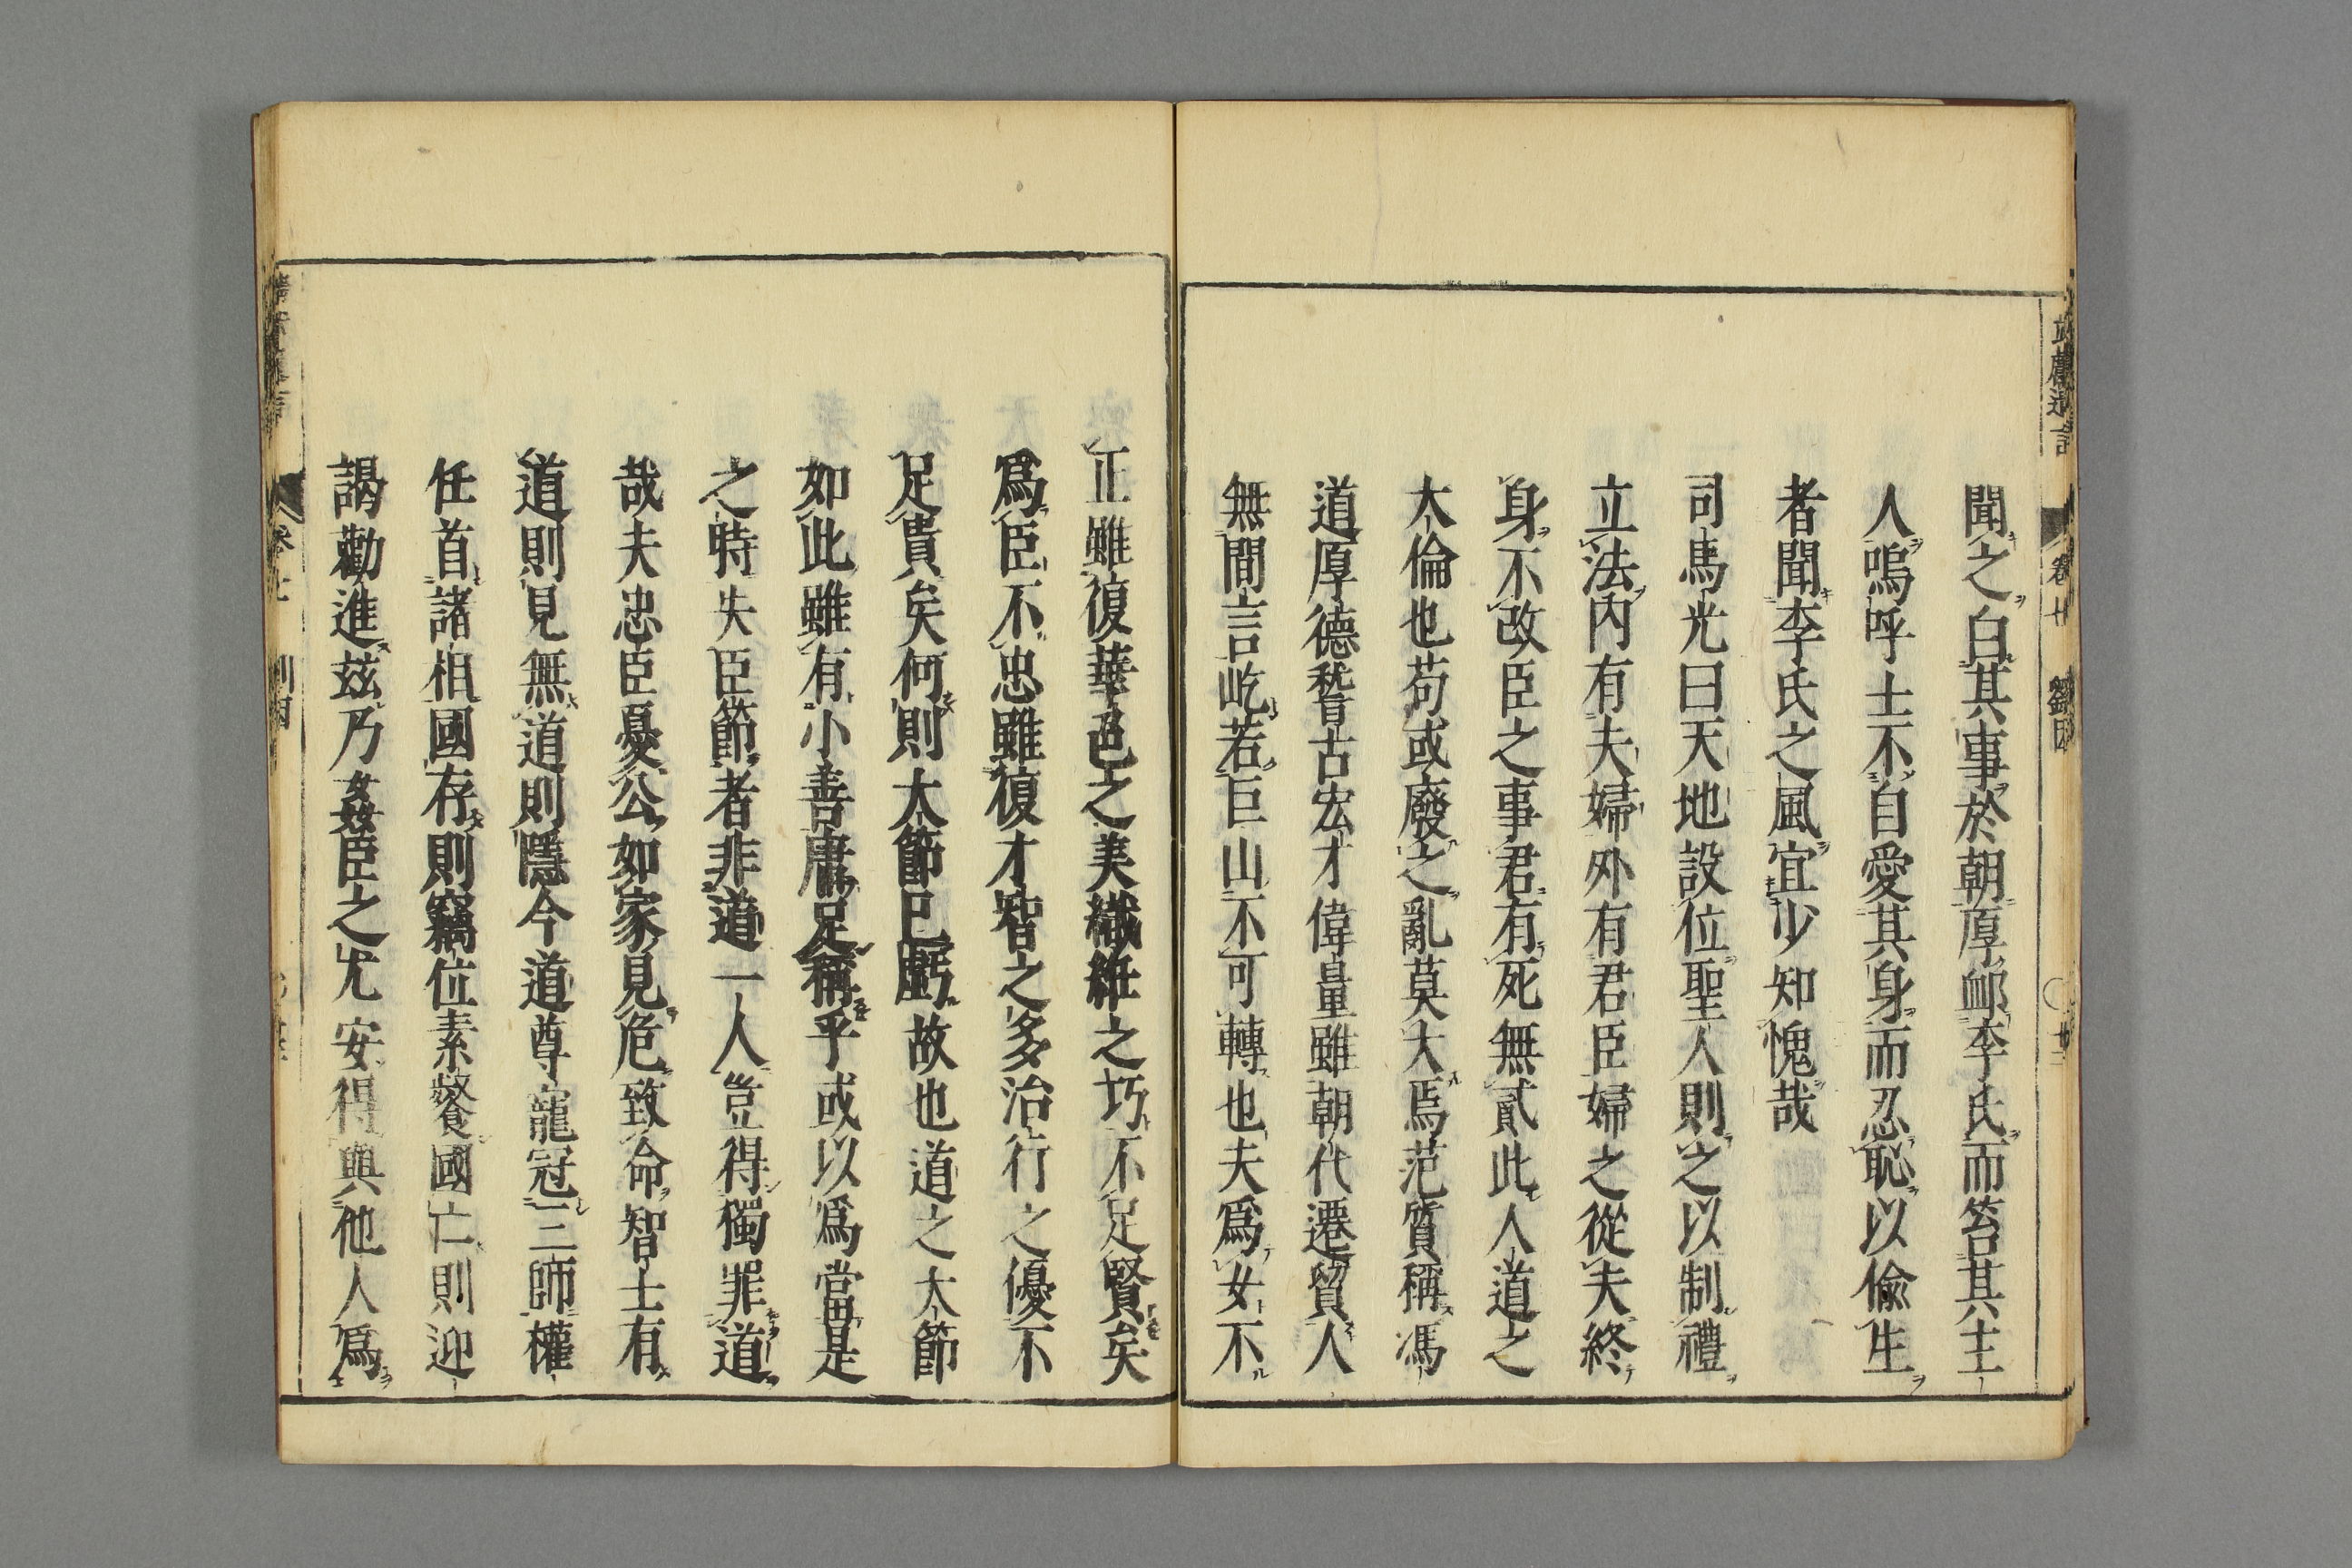 聞之白其事於朝厚卹李氏而笞其主
人嗚呼士不自愛其身而忍恥以偷生
者聞李氏之風宜少知愧哉
司馬光曰天地設位聖人則之以制禮
立法內有夫婦外有君臣婦之從夫終
身不改臣之事君有死無貳此人道之
大倫也苟或廢之亂莫大焉范質稱馮
道厚德稽古宏才偉量雖朝代遷貿人
無間言屹若巨山不可轉也夫爲女不
正雖復華色之美織紝之巧不足賢矣
爲臣不忠雖復才智之多治行之優不
足貴矣何則大節已虧故也道之大節
如此雖有小善庸足稱乎或以爲當是
之時失臣節者非道一人豈得獨罪道
哉夫忠臣憂公如家見危致命智士有
道則見無道則隱今道尊寵冠三師權
任首諸相國存則竊位素餐國亡則迎
謁勸進茲乃姦臣之尤安得與他人爲